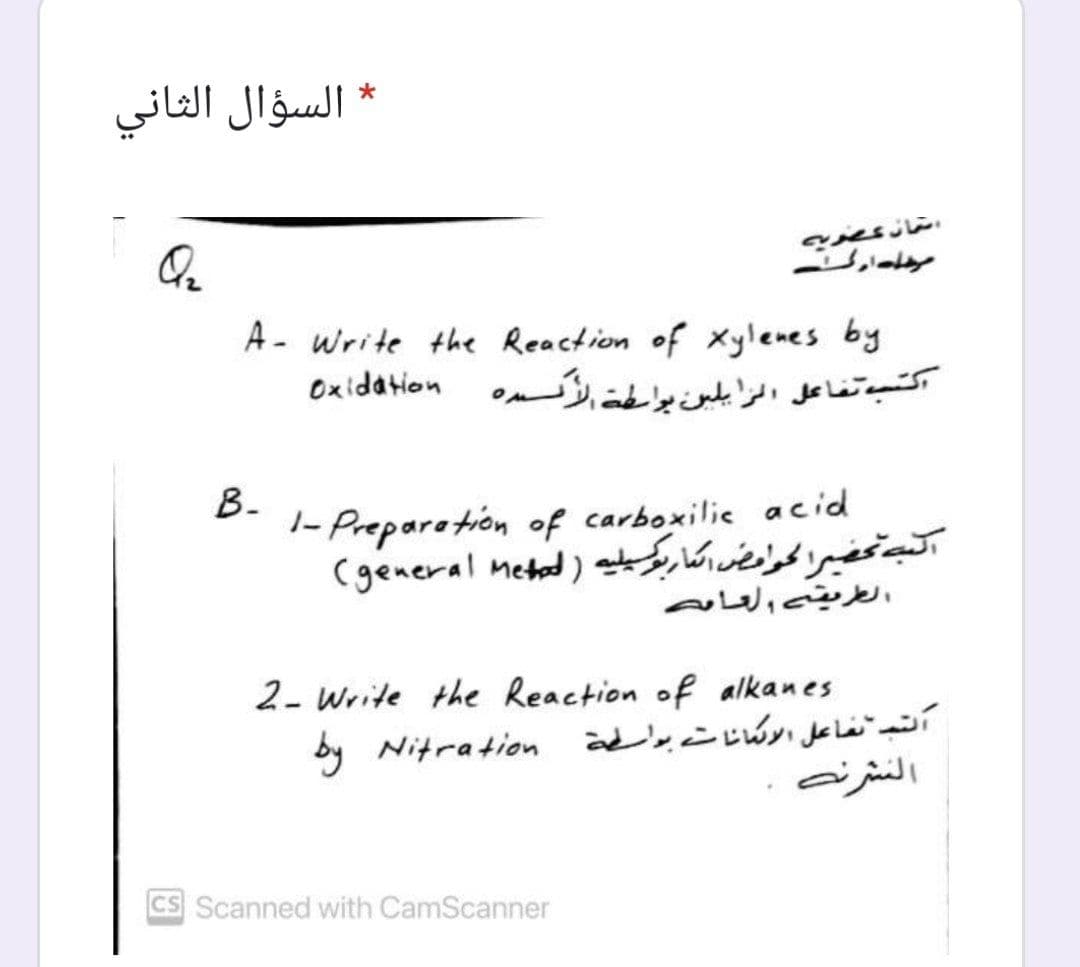 السؤال الثاني *
Q2
امتحان عضويه
مرحله اولى
A- Write the Reaction of xylenes by
Oxidation
اكتب تفاعل الزايلين بواسطة الأكسده
B-
1- Preparation of carboxilic acid
اكتب تحضير الحوامض الكاربوكسيليه
(general Metod)
الطريقه العامه
2- Write the Reaction of alkanes
by Nitration
أكتب تفاعل الالكانات بواسطة
النترنه .
CS Scanned with CamScanner